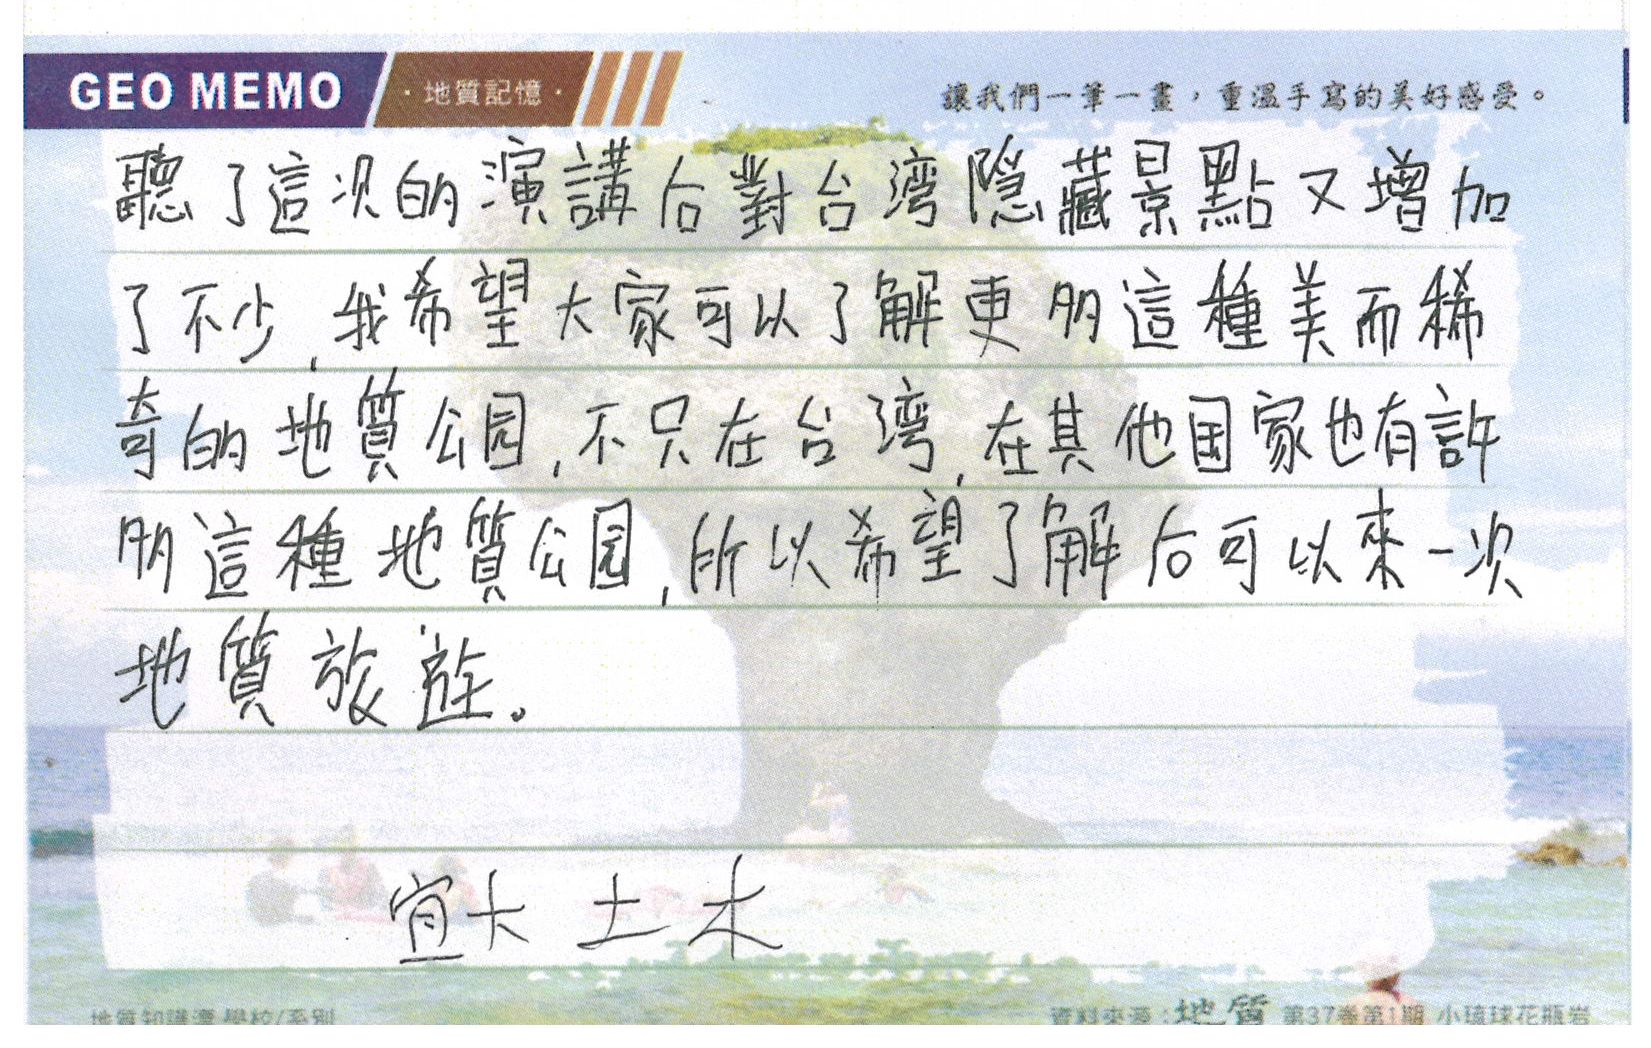 GEO MEMO ·地質記憶· 讓我們一筆一畫，重溫手寫的美好感受。
聽了這次的演講后對台湾隐藏景點又增加
了不少,我希望大家可以了解更多這種美而稀
奇的地質公园,不只在台湾,在其他国家也有許
多這種地質公园,所以希望了解后可以來一次
地質旅遊。
宜大土木
地質知識漂 學校/系別 資料來源：地質 第37卷第1期 小琉球花瓶岩